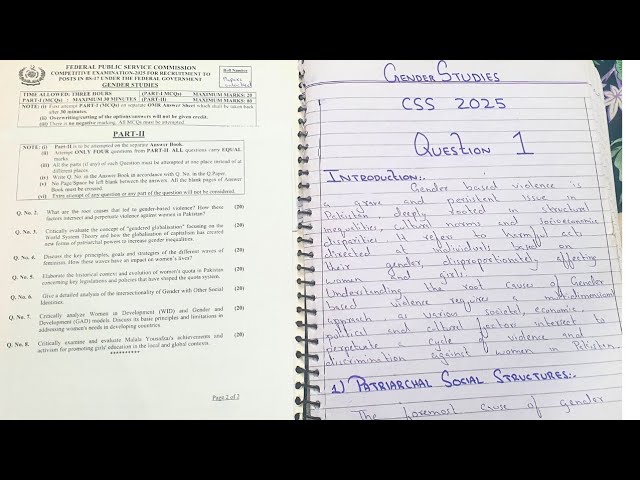 FEDERAL PUBLIC SERVICE COMMISSION
COMPETITIVE EXAMINATION-2025 FOR RECRUITMENT TO
POSTS IN BS-17 UNDER THE FEDERAL GOVERNMENT
GENDER STUDIES
Roll Number
TIME ALLOWED: THREE HOURS (PART-I MCQs) MAXIMUM MARKS: 20
PART-I (MCQs) : MAXIMUM 30 MINUTES (PART-II) MAXIMUM MARKS: 80
NOTE: (i) First attempt PART-I (MCQs) on separate OMR Answer Sheet which shall be taken back
after 30 minutes.
(ii) Overwriting/cutting of the options/answers will not be given credit.
(iii) There is no negative marking. All MCQs must be attempted.
PART-II
NOTE: (i) Part-II is to be attempted on the separate Answer Book.
(ii) Attempt ONLY FOUR questions from PART-II. ALL questions carry EQUAL
marks.
(iii) All the parts (if any) of each Question must be attempted at one place instead of at
different places.
(iv) Write Q. No. in the Answer Book in accordance with Q. No. in the Q.Paper.
(v) No Page/Space be left blank between the answers. All the blank pages of Answer
Book must be crossed.
(vi) Extra attempt of any question or any part of the question will not be considered.
Q. No. 2. What are the root causes that led to gender-based violence? How these (20)
factors intersect and perpetuate violence against women in Pakistan?
Q. No. 3. Critically evaluate the concept of "gendered globalisation" focusing on the (20)
World System Theory and how the globalisation of capitalism has created
new forms of patriarchal powers to increase gender inequalities.
Q. No. 4. Discuss the key principles, goals and strategies of the different waves of (20)
feminism. How these waves have an impact on women's lives?
Q. No. 5. Elaborate the historical context and evolution of women's quota in Pakistan (20)
concerning key legislations and policies that have shaped the quota system.
Q. No. 6. Give a detailed analysis of the intersectionality of Gender with Other Social (20)
Identities.
Q. No. 7. Critically analyze Women in Development (WID) and Gender and (20)
Development (GAD) models. Discuss its basic principles and limitations in
addressing women's needs in developing countries.
Q. No. 8. Critically examine and evaluate Malala Yousafzai's achievements and (20)
activism for promoting girls' education in the local and global contexts.
**********
Page 2 of 2
GENDER STUDIES
CSS 2025
QUESTION 1
INTRODUCTION:.
Gender based violence is
a grave and persistent issue in
Pakistan deeply rooted in structural
inequalities, cultural norms and socioeconomic
disparities. It refers to harmful act
directed at individuals based on
their gender disproportionately effecting
women and girls.
Understanding the root cause of Gender
based violence requires a multidimensional
approach as various societal, economic,
political and cultural factor intersect to
perpetuate a cycle of violence and
discrimination against women in Pakistan.
1) PATRIARCHAL SOCIAL STRUCTURES:.
The foremost cause of gender